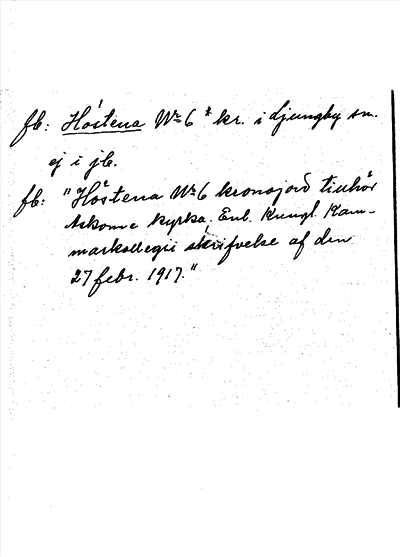 fb: Hóstena Nr 6 * kr. i Ljungby sn.
ej i jb.
fb: "Hóstena Nr 6 kronojord tillhör
Askome kyrka. Enl. Kungl. Kam-
markollegii skrifvelse af den
27 febr. 1917."